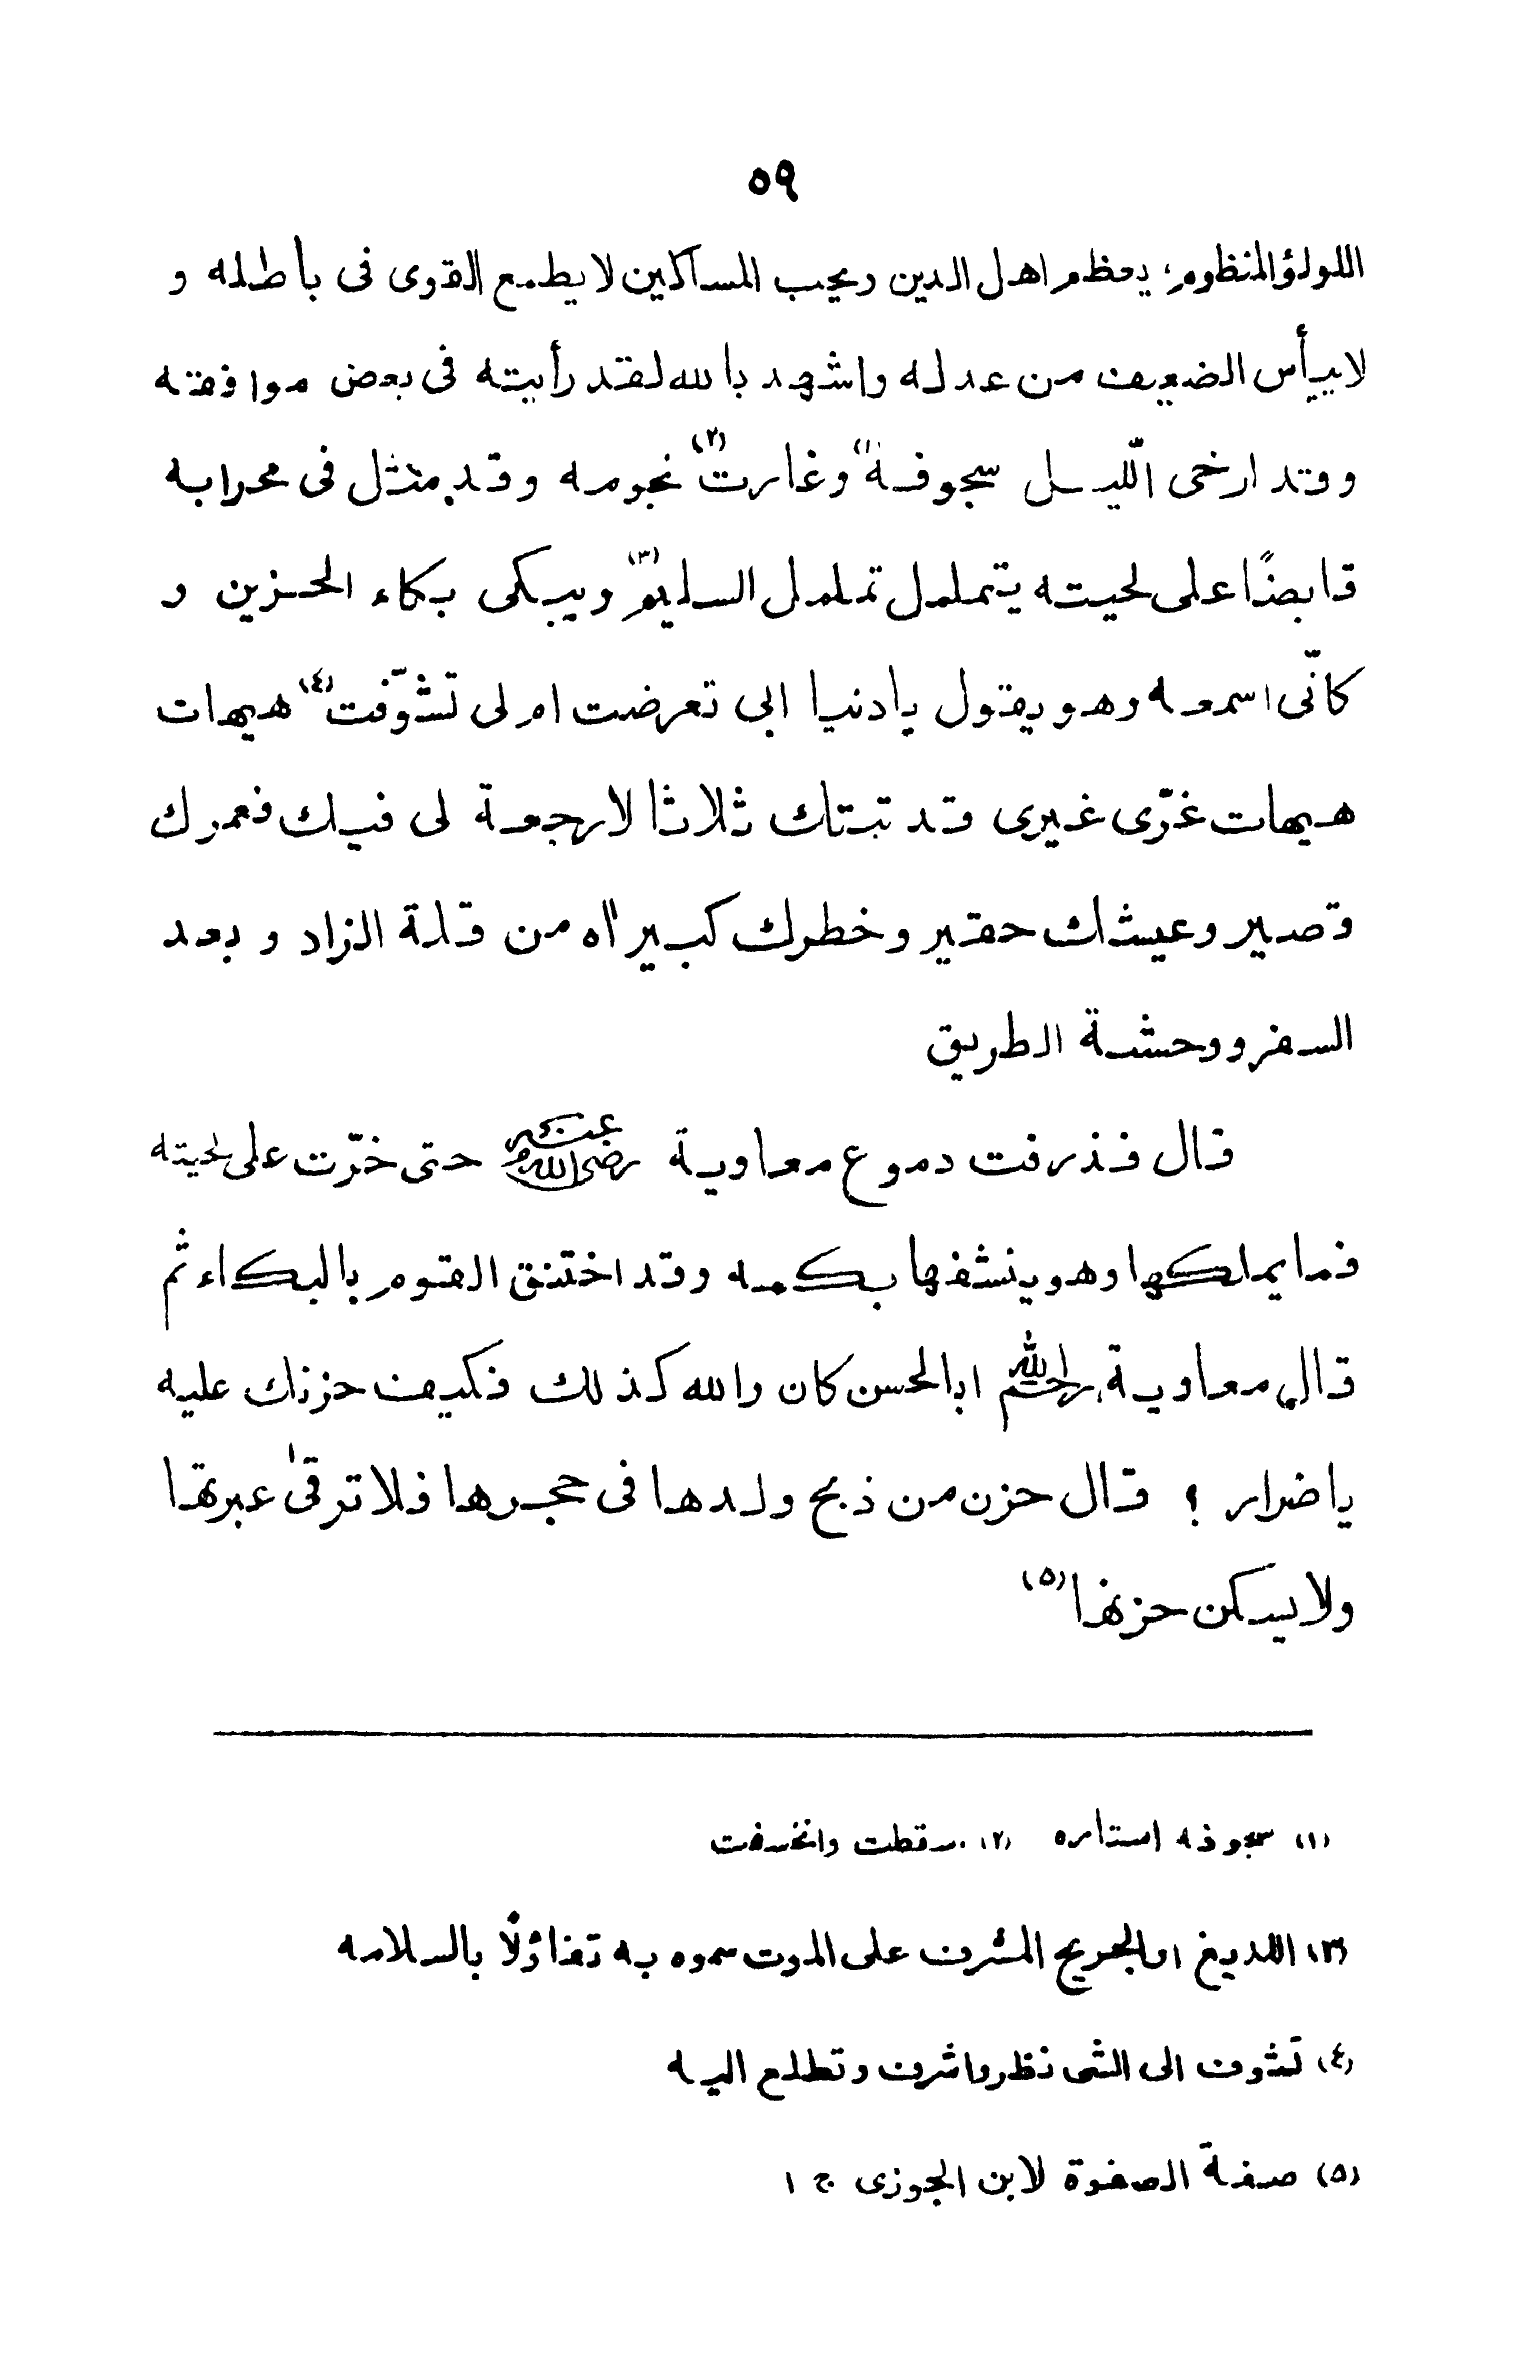 ٥٩
اللولؤ المنظوم، يعظم اهل الدين ويحب المساكين لا يطمع القوى فى باطله و
لا ييأس الضعيف من عدله واشهد بالله لقد رأيته فى بعض موافقته
وقد ارخى اللّيل سجوفة(١) وغارت(٢) نجومه وقد مثل فى محرابه
قابضًا على لحيته يتململ تململ السليم(٣) ويبكى بكاء الحزين و
كانّى اسمعه وهو يقول يا دنيا ابى تعرضت ام لى تشوّفت(٤) هيهات
هيهات غرّى غيرى قد تبتك ثلاثا لا رجعة لى فيك فعمرك
قصير وعيشك حقير وخطرك كبير اٰه من قلة الزاد و بعد
السفر ووحشة الطريق
قال فذرفت دموع معاوية رضى الله عنه حتى خرّت على لحيته
فما يملكها وهو ينشفها بكمه وقد اختنق القوم بالبكاء ثم
قال معاوية، رحم الله ابا الحسن كان والله كذلك فكيف حزنك عليه
يا ضرار ؟ قال حزن من ذبح ولدها فى حجرها فلا ترقىٰ عبرتها
ولا يسكن حزنها(٥)
(١) سجوفه استاره (٢) سقطت وانخسفت
(٣) اللديغ او الجريح المشرف على الموت سموه به تفاؤلًا بالسلامه
(٤) تشوف الى الشى نظر واشرف وتطلع اليه
(٥) صفة الصفوة لابن الجوزى ج ١